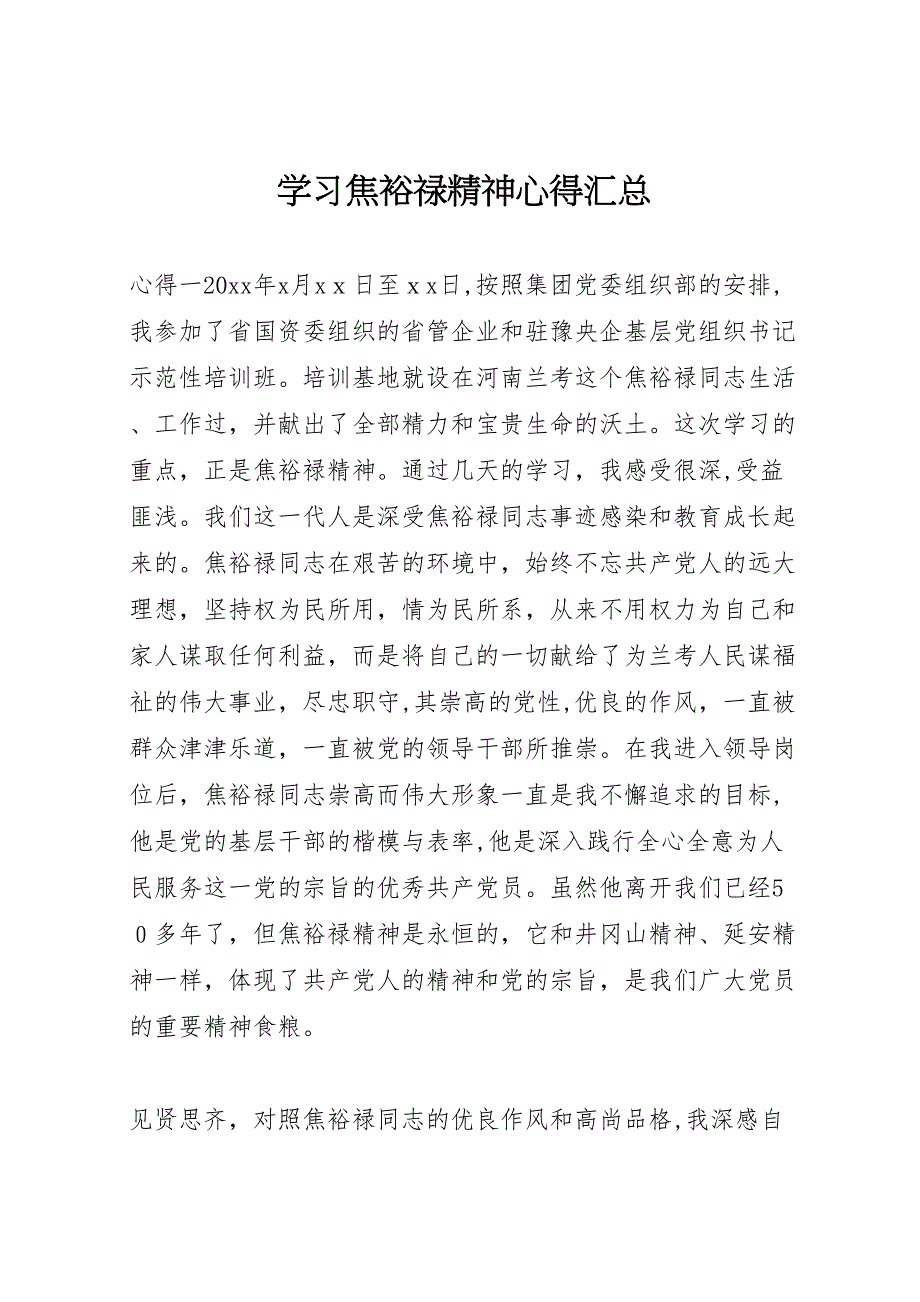 学习焦裕禄精神心得汇总
心得一20xx年x月xｘ日至ｘx日,按照集团党委组织部的安排,
我参加了省国资委组织的省管企业和驻豫央企基层党组织书记
示范性培训班。培训基地就设在河南兰考这个焦裕禄同志生活
、工作过，并献出了全部精力和宝贵生命的沃土。这次学习的
重点，正是焦裕禄精神。通过几天的学习，我感受很深,受益
匪浅。我们这一代人是深受焦裕禄同志事迹感染和教育成长起
来的。焦裕禄同志在艰苦的环境中，始终不忘共产党人的远大
理想，坚持权为民所用，情为民所系，从来不用权力为自己和
家人谋取任何利益，而是将自己的一切献给了为兰考人民谋福
祉的伟大事业，尽忠职守,其崇高的党性,优良的作风，一直被
群众津津乐道，一直被党的领导干部所推崇。在我进入领导岗
位后，焦裕禄同志崇高而伟大形象一直是我不懈追求的目标,
他是党的基层干部的楷模与表率,他是深入践行全心全意为人
民服务这一党的宗旨的优秀共产党员。虽然他离开我们已经5
０多年了，但焦裕禄精神是永恒的，它和井冈山精神、延安精
神一样，体现了共产党人的精神和党的宗旨，是我们广大党员
的重要精神食粮。
见贤思齐，对照焦裕禄同志的优良作风和高尚品格,我深感自